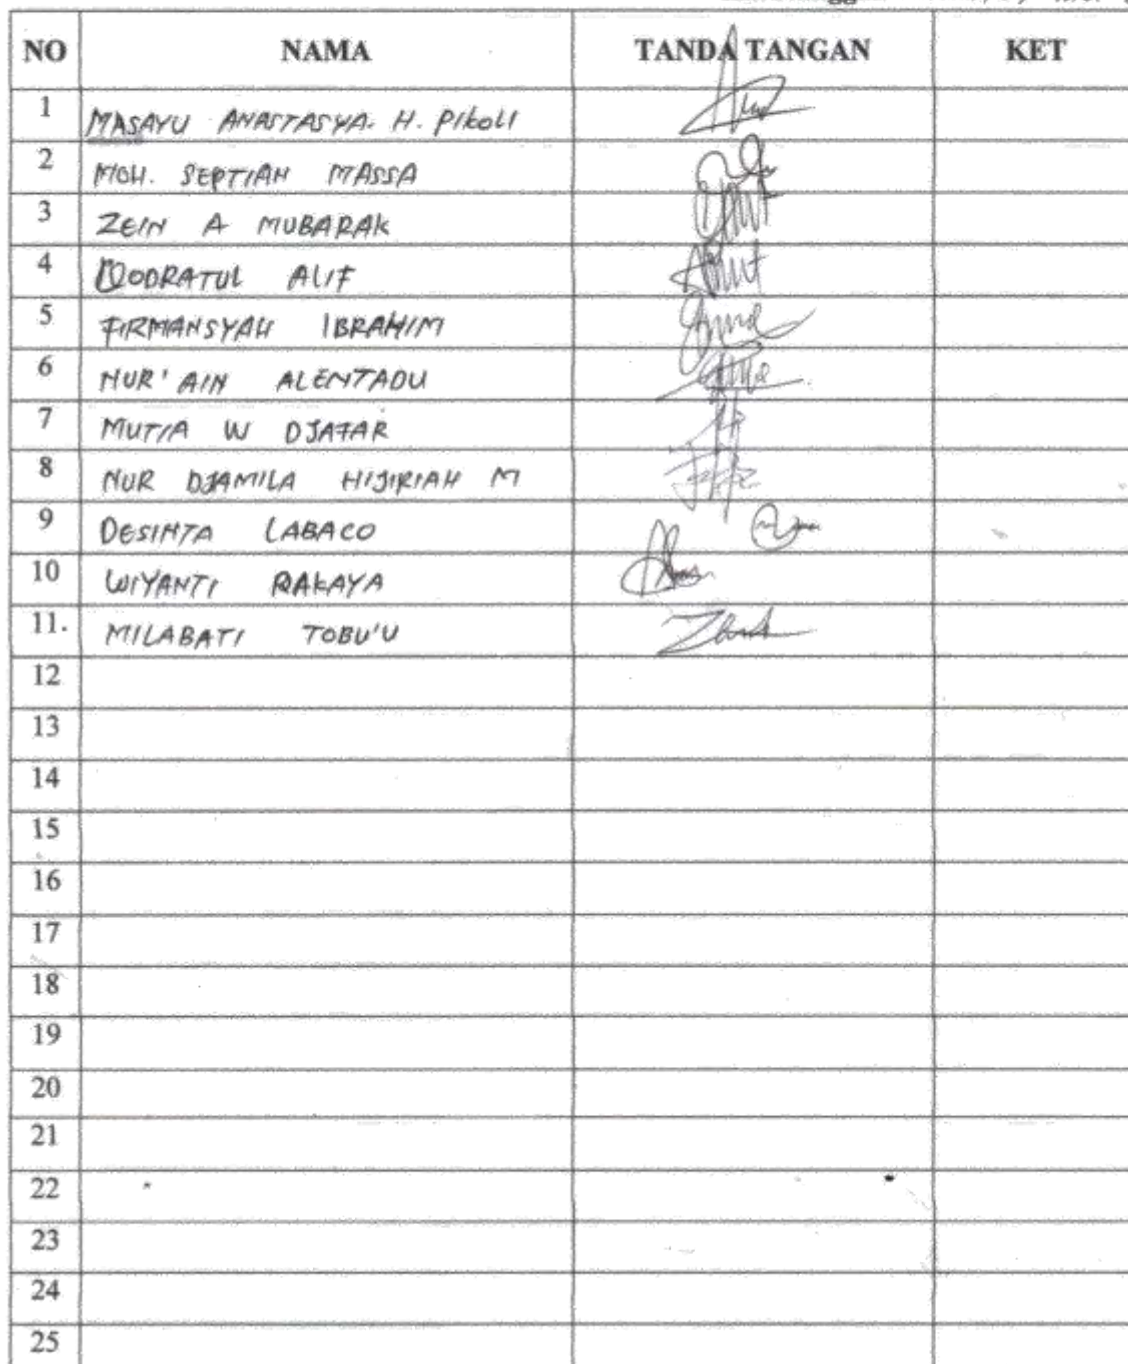 NO NAMA TANDA TANGAN KET
1 MASAYU ANASTASYA. H. PIKOLI
2 MOH. SEPTIAN MASSA
3 ZEIN A MUBARAK
4 QODRATUL ALIF
5 FIRMANSYAH IBRAHIM
6 NUR'AIN ALENTADU
7 MUTIA W DJAFAR
8 NUR DJAMILA HIJIRIAH M
9 DESINTA LABACO
10 WIYANTI RAKAYA
11. MILABATI TOBU'U
12
13
14
15
16
17
18
19
20
21
22
23
24
25